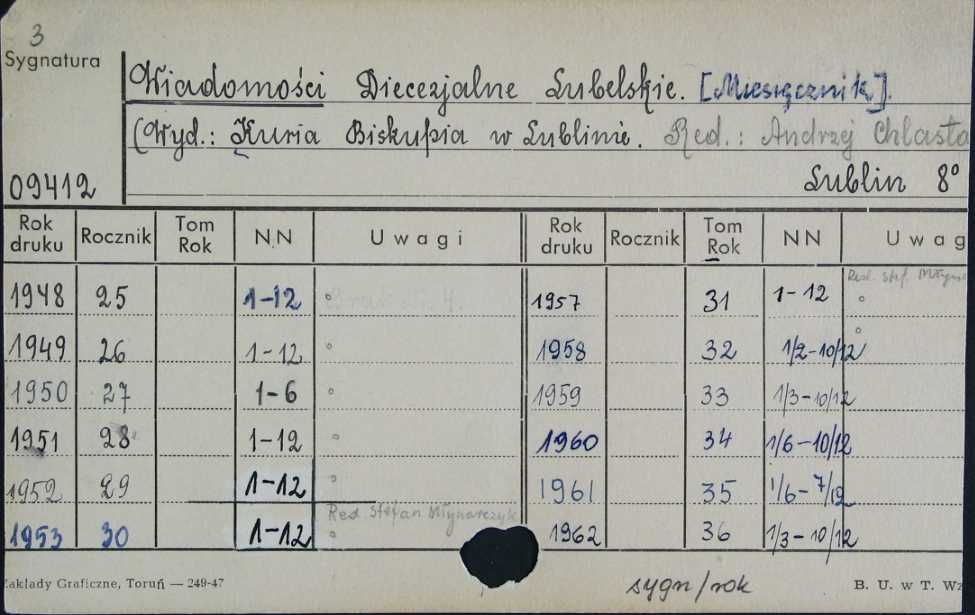 3
Sygnatura
Wiadomości Diecezjalne Lubelskie. [Miesięcznik].
(Wyd.: Kuria Biskupia w Lublinie. Red.: Andrzej Chlasta
09412
Lublin 8°
Rok druku Rocznik Tom Rok NN Uwagi Rok druku Rocznik Tom Rok NN Uwag
Red. Stef.
1948 25 1-12 ° 1957 31 1-12 °
1949 26 1-12 ° 1958 32 1/2-10/12 °
1950 27 1-6 ° 1959 33 1/3-10/12
1951 28 1-12 ° 1960 34 1/6-10/12
1952 29 1-12 ° 1961 35 1/6-7/12
Red Stefan Młynarczyk
1953 30 1-12 ° 1962 36 1/3-10/12
Zakłady Graficzne, Toruń — 249-47
sygn/rok
B. U. w T. Wz